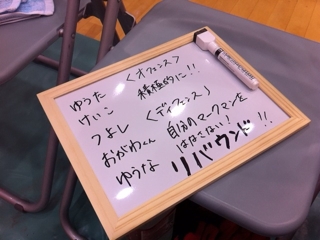 ゆうた
けいこ
つよし
おがわくん
ゆうな
<オフェンス>
積極的に!!
<ディフェンス>
自分のマークマンを
はなさない!
リバウンド!!